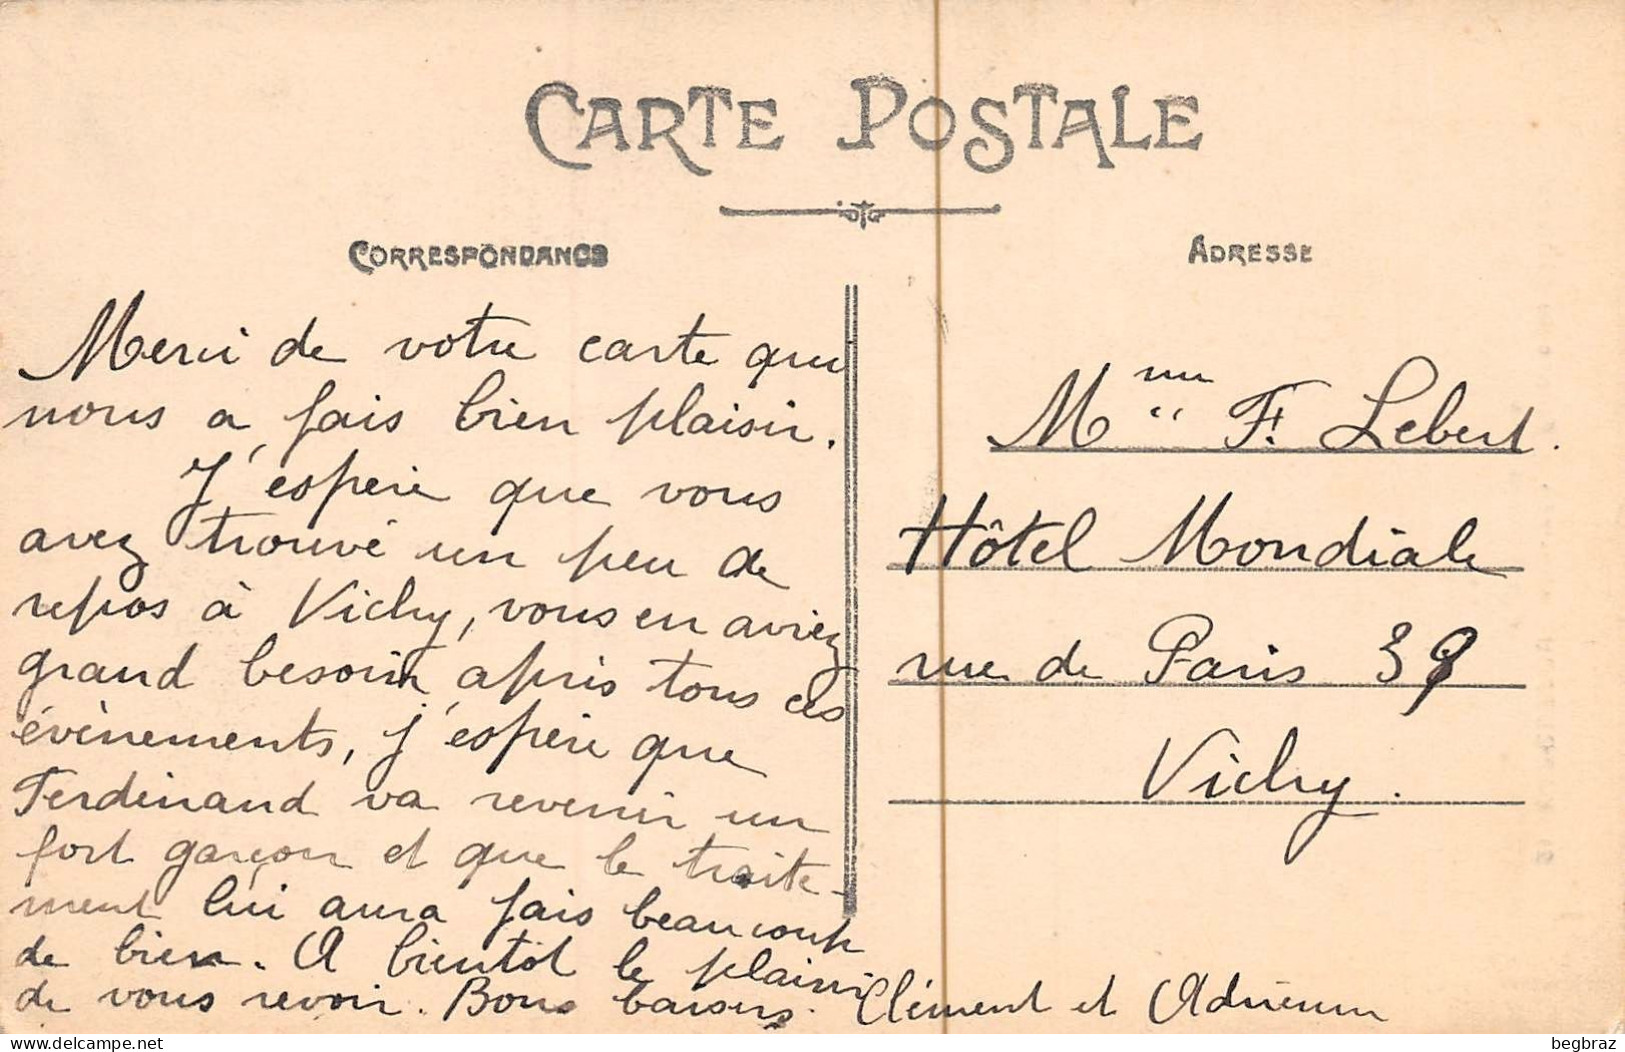 CARTE POSTALE
CORRESPONDANCE
ADRESSE
Merci de votre carte qui
nous a fais bien plaisir.
J'espère que vous
avez trouvé un peu de
repos à Vichy, vous en aviez
grand besoin, après tous ces
évènements, j'espère que
Ferdinand va revenir un
fort garçon et que le traite-
ment lui aura fais beaucoup
de bien. A bientôt le plaisir
de vous revoir. Bons baisers.
Clément et Adrienne
Mme F. Lebert.
Hôtel Mondiale
rue de Paris 39
Vichy.
begbraz